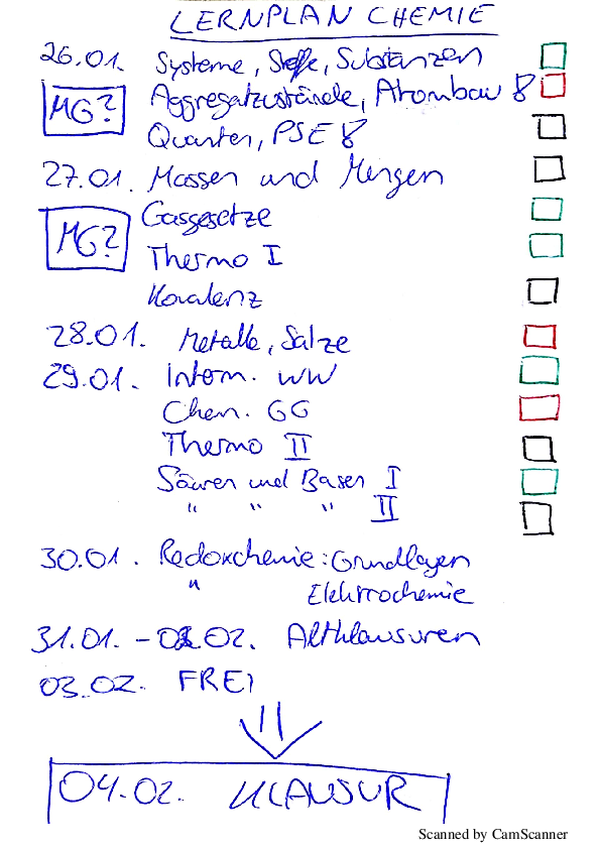 LERNPLAN CHEMIE
26.01. Systeme, Stoffe, Substanzen
MG? Aggregatzustände, Atombau 8
Quanten, PSE 8
27.01. Massen und Mengen
MG? Gasgesetze
Thermo I
Kovalenz
28.01. Metalle, Salze
29.01. Interm. WW
Chem. GG
Thermo II
Säuren und Basen I
" " " II
30.01. Redoxchemie: Grundlagen
" Elektrochemie
31.01. - 02.02. Altklausuren
03.02. FREI
04.02. KLAUSUR
Scanned by CamScanner